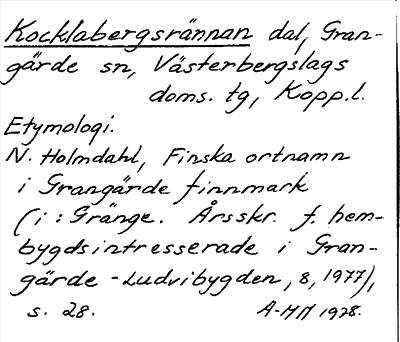 Kocklabergsrännan dal, Gran-
gärde sn, Västerbergslags
doms. tg, Kopp.l.
Etymologi.
N. Holmdahl, Finska ortnamn
i Grangärde finnmark
(i: Gränge. Årsskr. f. hem-
bygdsintresserade i Gran-
gärde - Ludvibygden, 8, 1977),
s. 28. A-MM 1978.